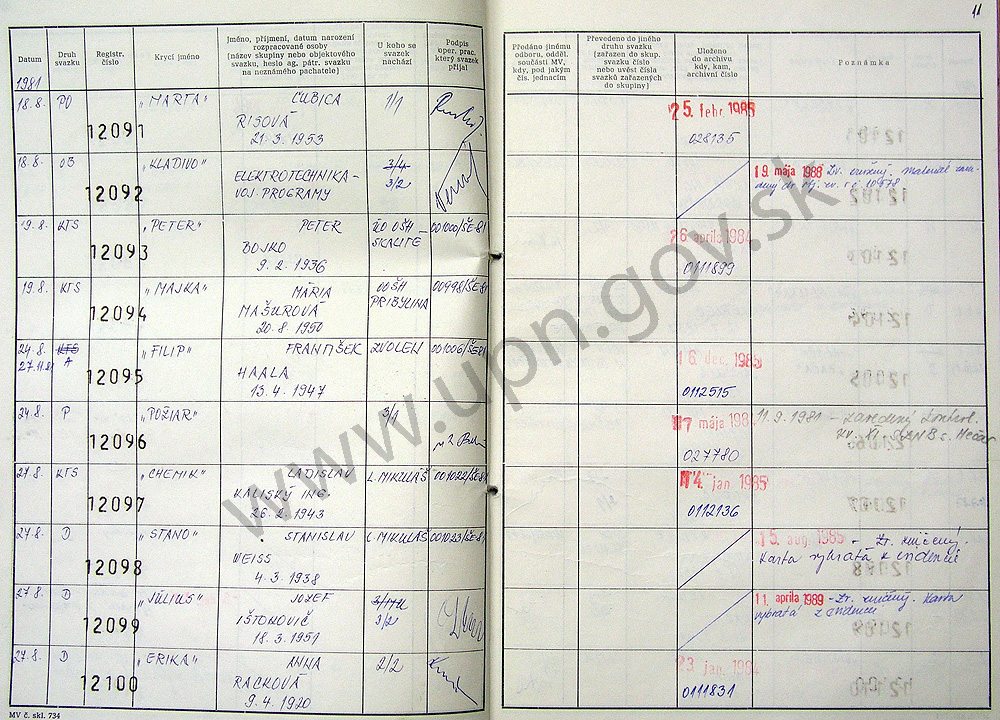 11
Datum
Druh svazku
Registr. číslo
Krycí jméno
Jméno, příjmení, datum narození
rozpracované osoby
(název skupiny nebo objektového
svazku, heslo ag. pátr. svazku
na neznámého pachatele)
U koho se
svazek
nachází
Podpis
oper. prac.
který svazek
přijal
Předáno jinému
odboru, odděl.
součásti MV,
kdy, pod jakým
čís. jednacím
Převedeno do jiného
druhu svazku
(zařazen do skup.
svazku číslo
nebo uvést čísla
svazků zařazených
do skupiny)
Uloženo
do archivu
kdy, kam,
archivní číslo
Poznámka
1981
18.8. PO „MARTA" ĽUBICA 1/1
12091 RISOVÁ
21.3.1953
25. febr. 1985
028135
18.8. OB „KLADIVO" 3/4
12092 ELEKTROTECHNIKA - 3/2
VOJ. PROGRAMY
19. mája 1988 Zv. zničený. materiál
19.8. KTS „PETER" PETER OO OŠH - 001000/ŠE-81
12093 BOJKO SKALITE
9.2.1936
26. apríla 1984
0111899
19.8. KTS „MAJKA" MÁRIA OOŠH 00998/ŠE81
12094 MAŠUROVÁ PRIBYLINA
20.8.1950
24.8. KTS „FILIP" FRANTIŠEK ZVOLEN 001006/ŠE81
27.11.81 A
12095 HAALA
13.4.1947
16. dec. 1985
0112515
24.8. P „POŽIAR" 3/1
12096
mája
027780
11.9.1981 - zavedený kontrol.
zv. XI.
27.8. KTS „CHEMIK" LADISLAV L. MIKULÁŠ 001022/ŠE81
12097 KALISKÝ ING.
26.2.1943
14. jan. 1985
0112136
27.8. D „STANO" STANISLAV L. MIKULÁŠ 001023/ŠE81
12098 WEISS
4.3.1938
15. aug. 1985 - Zv. zničený.
Karta vybratá z evidencie
27.8. D „JÚLIUS" JOZEF
12099 IŠTONOVIČ 3/2
18.3.1951
11. apríla 1989 - Zv. zničený. Karta
vybratá z evidencie
27.8. D „ERIKA" ANNA 2/2
12100 RACKOVÁ
9.4.1920
23. jan. 1984
0111831
MV č. skl. 734
www.upn.gov.sk